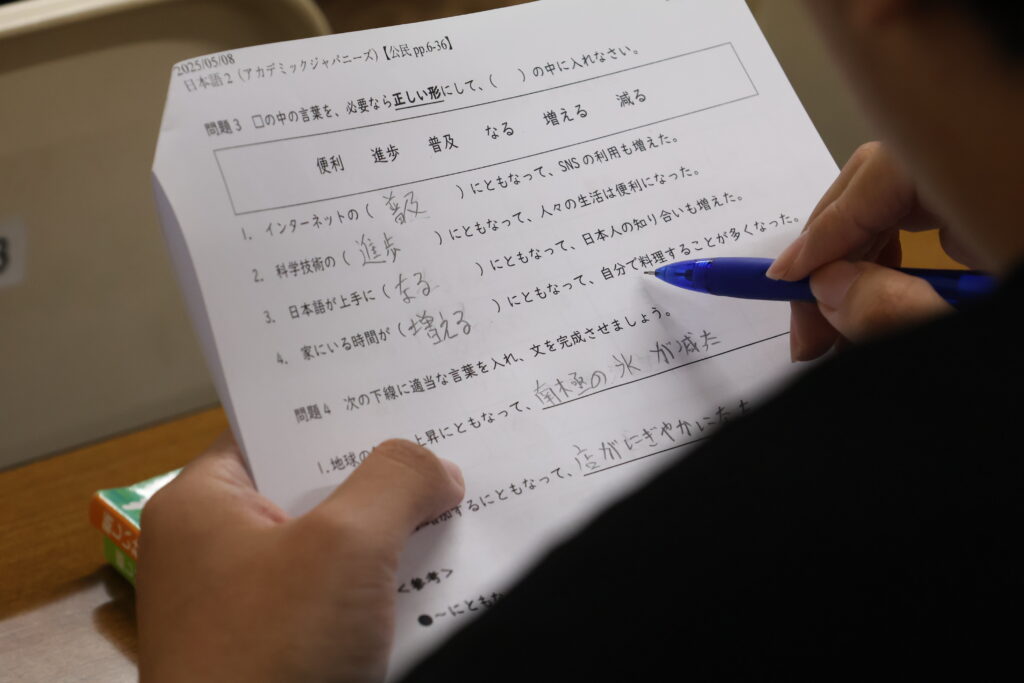 2025/05/08
日本語2（アカデミックジャパニーズ）【公民 pp.6-36】
問題3 □の中の言葉を、必要なら正しい形にして、（ ）の中に入れなさい。
便利 進歩 普及 なる 増える 減る
1. インターネットの（ 普及 ）にともなって、SNSの利用も増えた。
2. 科学技術の（ 進歩 ）にともなって、人々の生活は便利になった。
3. 日本語が上手に（ なる ）にともなって、日本人の知り合いも増えた。
4. 家にいる時間が（ 増える ）にともなって、自分で料理することが多くなった。
問題4 次の下線に適当な言葉を入れ、文を完成させましょう。
1. 地球の 上昇にともなって、南極の氷が減た
加するにともなって、店がにぎやかになた
<参考>
●～にともな